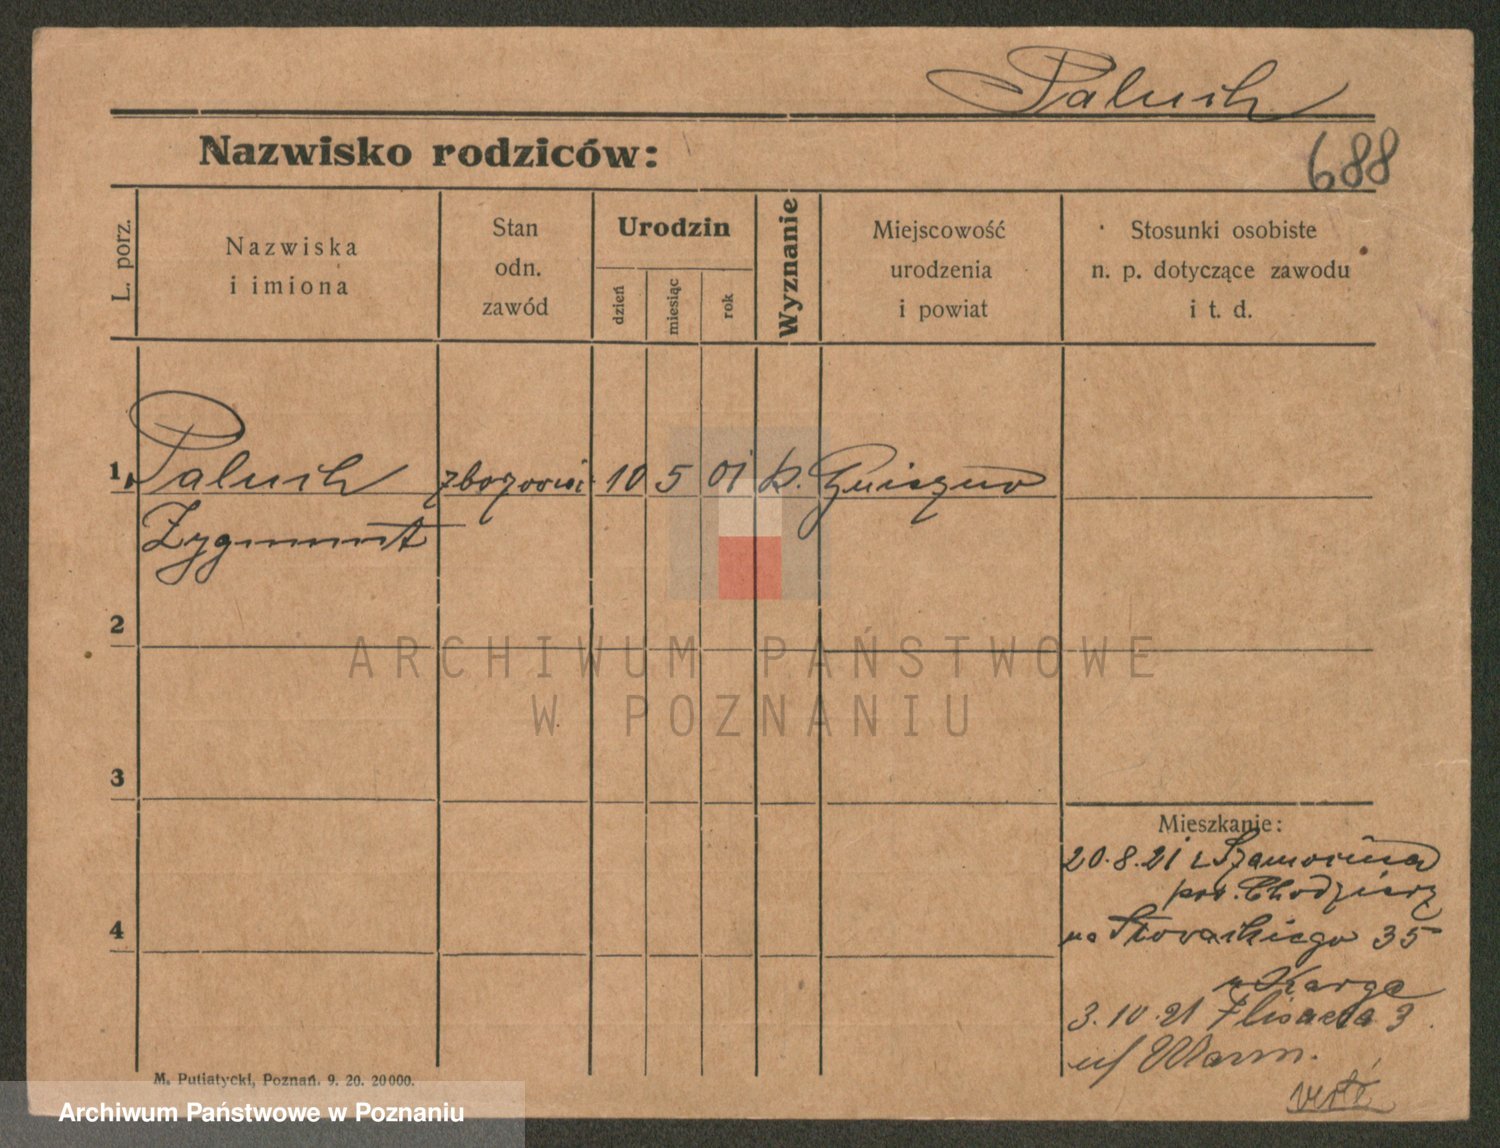 Paluch
Nazwisko rodziców:
688
L. porz.
Nazwiska
i imiona
Stan
odn.
zawód
Urodzin
dzień
miesiąc
rok
Wyznanie
Miejscowość
urodzenia
i powiat
Stosunki osobiste
n. p. dotyczące zawodu
i t. d.
1
Paluch
10 5 01 k.
Zygmunt
2
ARCHIWUM PAŃSTWOWE
W POZNANIU
3
Mieszkanie:
20.8.21 z Szamocina
pow. Chodzież
4
na Słowackiego 35
u Karge
3.10.21 3
u/
M. Putiatycki, Poznań. 9. 20. 20000.
Archiwum Państwowe w Poznaniu